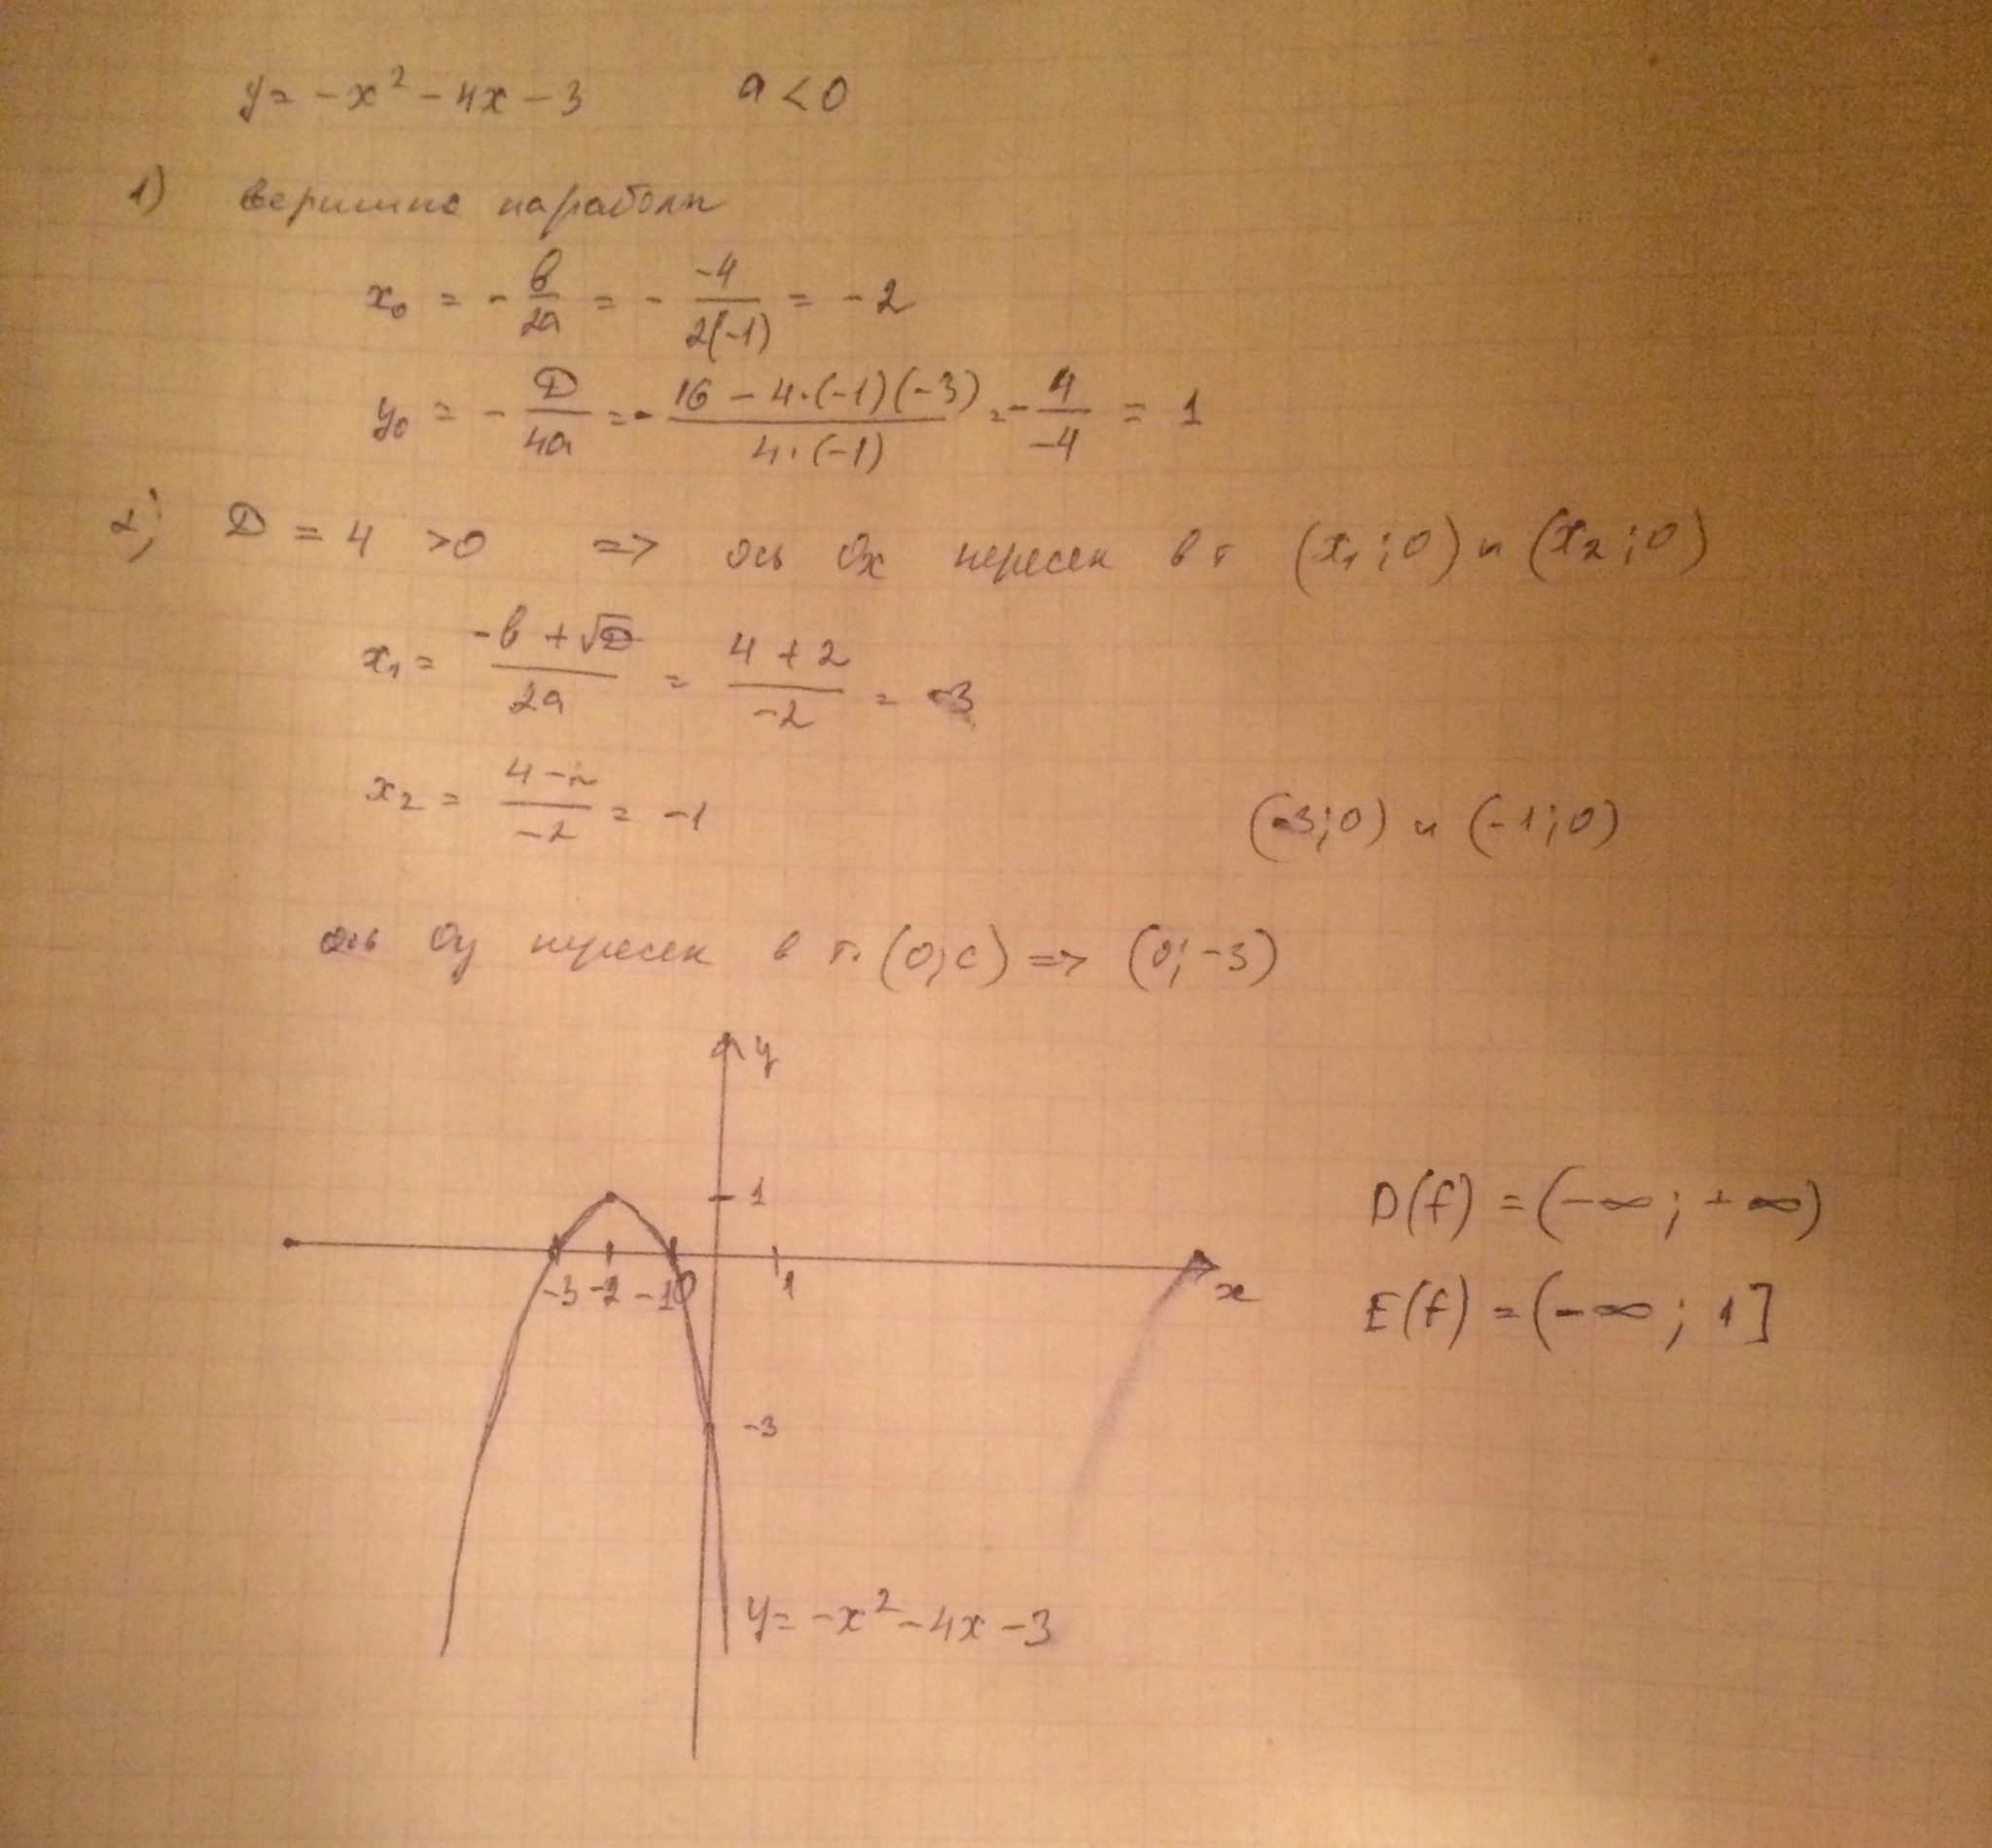 y = -x² - 4x - 3 a < 0
1) вершина параболы
x₀ = - b/2a = - -4/2(-1) = -2
y₀ = - D/4a = - 16 - 4·(-1)(-3)/4·(-1) = - 4/-4 = 1
2) D = 4 > 0 => ось Ox пересек в т (x₁; 0) и (x₂; 0)
x₁ = -b + √D/2a = 4 + 2/-2 = -3
x₂ = 4 - 2/-2 = -1
(-3; 0) и (-1; 0)
ось Oy пересек в т. (0; c) => (0; -3)
y
1
-3 -2 -1 0 1 x
D(f) = (-∞; +∞)
E(f) = (-∞; 1]
-3
y = -x² - 4x - 3